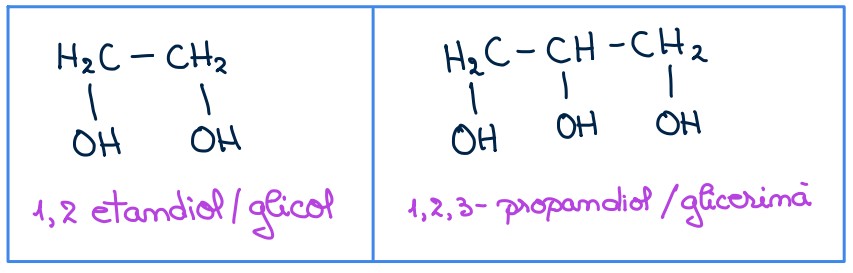 H₂C – CH₂
OH OH
1,2 etandiol/glicol
H₂C – CH – CH₂
OH OH OH
1,2,3- propandiol/glicerină